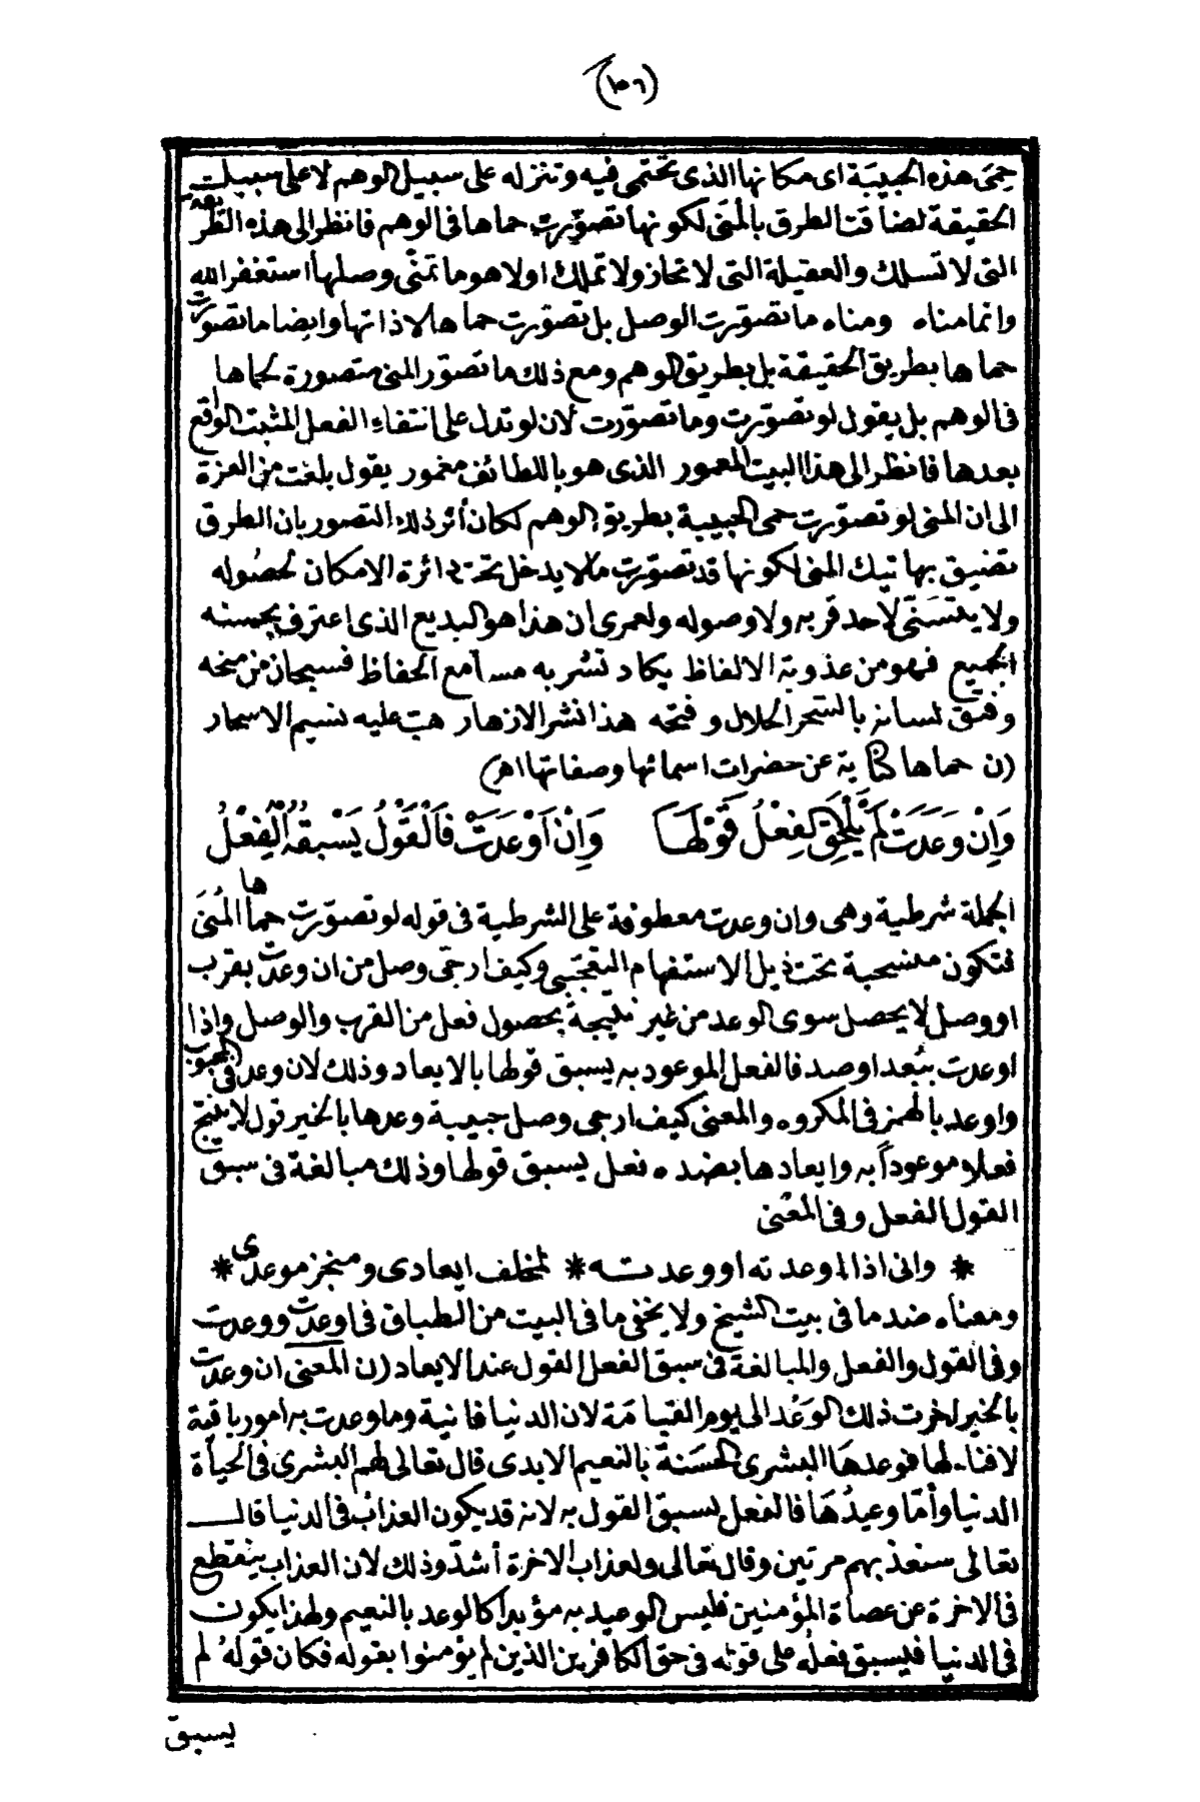 (١٥٦)
حِمَى هذه الحبيبَة اى مكانها الذى تحتمى فيه وتنزله على سبيل الوهم لا على سبيل
الحقيقة لضاقت الطرق بالمُنَى لكونها تصوّرت حماها فى الوهم فانظر الى هذه الطريقة
التى لا تسلك والعقيلة التى لا تحاز ولا تملك اولا هو ما تمنّى وصلها أستغفر الله
وانما مناه ومناه ما تصوّرت الوصل بل تصوّرت حماها لا ذاتها وايضا ما تصوّرت
حماها بطريق الحقيقة بل بطريق الوهم ومع ذلك ما تصوّر المنى متصورة لحماها
فى الوهم بل يقول لو تصوّرت وما تصوّرت لان لو تدل على انتفاء الفعل المثبت الواقع
بعدها فانظر الى هذا البيت المعمور الذى هو باللطائف مغمور يقول بلغت من العزة
الى ان المنى لو تصوّرت حمى الحبيبة بطريق الوهم لكان أثر ذلك التصور بان الطرق
تضيق بهاتيك المنى لكونها قد تصوّرت ما لا يدخل تحت دائرة الامكان لحصُوله
ولا يتسَنّى لاحد قربه ولا وصوله ولعمرى ان هذا هو البديع الذى اعترف بحسنه
الجميع فهو من عذوبة الالفاظ يكاد تشربه مسامع الحفاظ فسبحان من منحه
وفتق لسانه بالسّحر الحلال وفتحه هذا نشر الازهار هبّ عليه نسيم الاسحار
(ن حماها كناية عن حضرات اسمائها وصفاتها اهـ)
وَاِنْ وَعَدَتْ لَمْ يَلْحَقِ الفِعْلُ قَوْلَهَا وَاِنْ اَوْعَدَتْ فَالْقَوْلُ يَسْبِقُهُ الْفِعْلُ
الجملة شرطية وهى وان وعدت معطوفة على الشرطية فى قوله لو تصوّرت حماها المُنَى
فتكون منسحبة تحت ذيل الاستفهام التعجّبى وكيف ارجّى وصل من ان وعدت بقرب
او وصل لا يحصل سوى الوعد من غير نتيجة بحصول فعل من القرب والوصل واذا
اوعدت ببُعد او صد فالفعل الموعود به يسبق قولها بالايعاد وذلك لان وعد فى المحبوب
واوعد بالهمز فى المكروه والمعنى كيف ارجى وصل حبيبة وعدها بالخير قول لا ينتج
فعلا موعوداً به وايعادها بضده فعل يسبق قولها وذلك مبالغة فى سبق
القول الفعل وفى المعْنى
* وانى اذا اوعدته او وعدته * لمخلف ايعادى ومنجز موعدى *
ومعناه ضد ما فى بيت الشيخ ولا يخفى ما فى البيت من الطباق فى اوعدت ووعدت
وفى القول والفعل والمبالغة فى سبق الفعل القول عند الايعاد (ن المعنى ان وعدت
بالخير اخرت ذلك الوَعْد الى يوم القيامَة لان الدنيا فانية وما وعدت به امور باقية
لا فناء لها فوعدهَا البشرى الحسَنة بالنعيم الابدى قال تعالى لهم البشرى فى الحياة
الدنيا وأمّا وعيدُهَا فالفعل يسبق القول به لانه قد يكون العذاب فى الدنيا قال
تعالى سنعذبهم مرتين وقال تعالى ولعذاب الاخرة أشدّ وذلك لان العذاب ينقطع
فى الاخرة عن عصاة المؤمنين فليس الوعيد به مؤبدا كالوعد بالنعيم ولهذا يكون
فى الدنيا فيسبق فعله على قوله فى حق الكافرين الذين لم يؤمنوا بقوله فكان قولهُ لم
يسبق